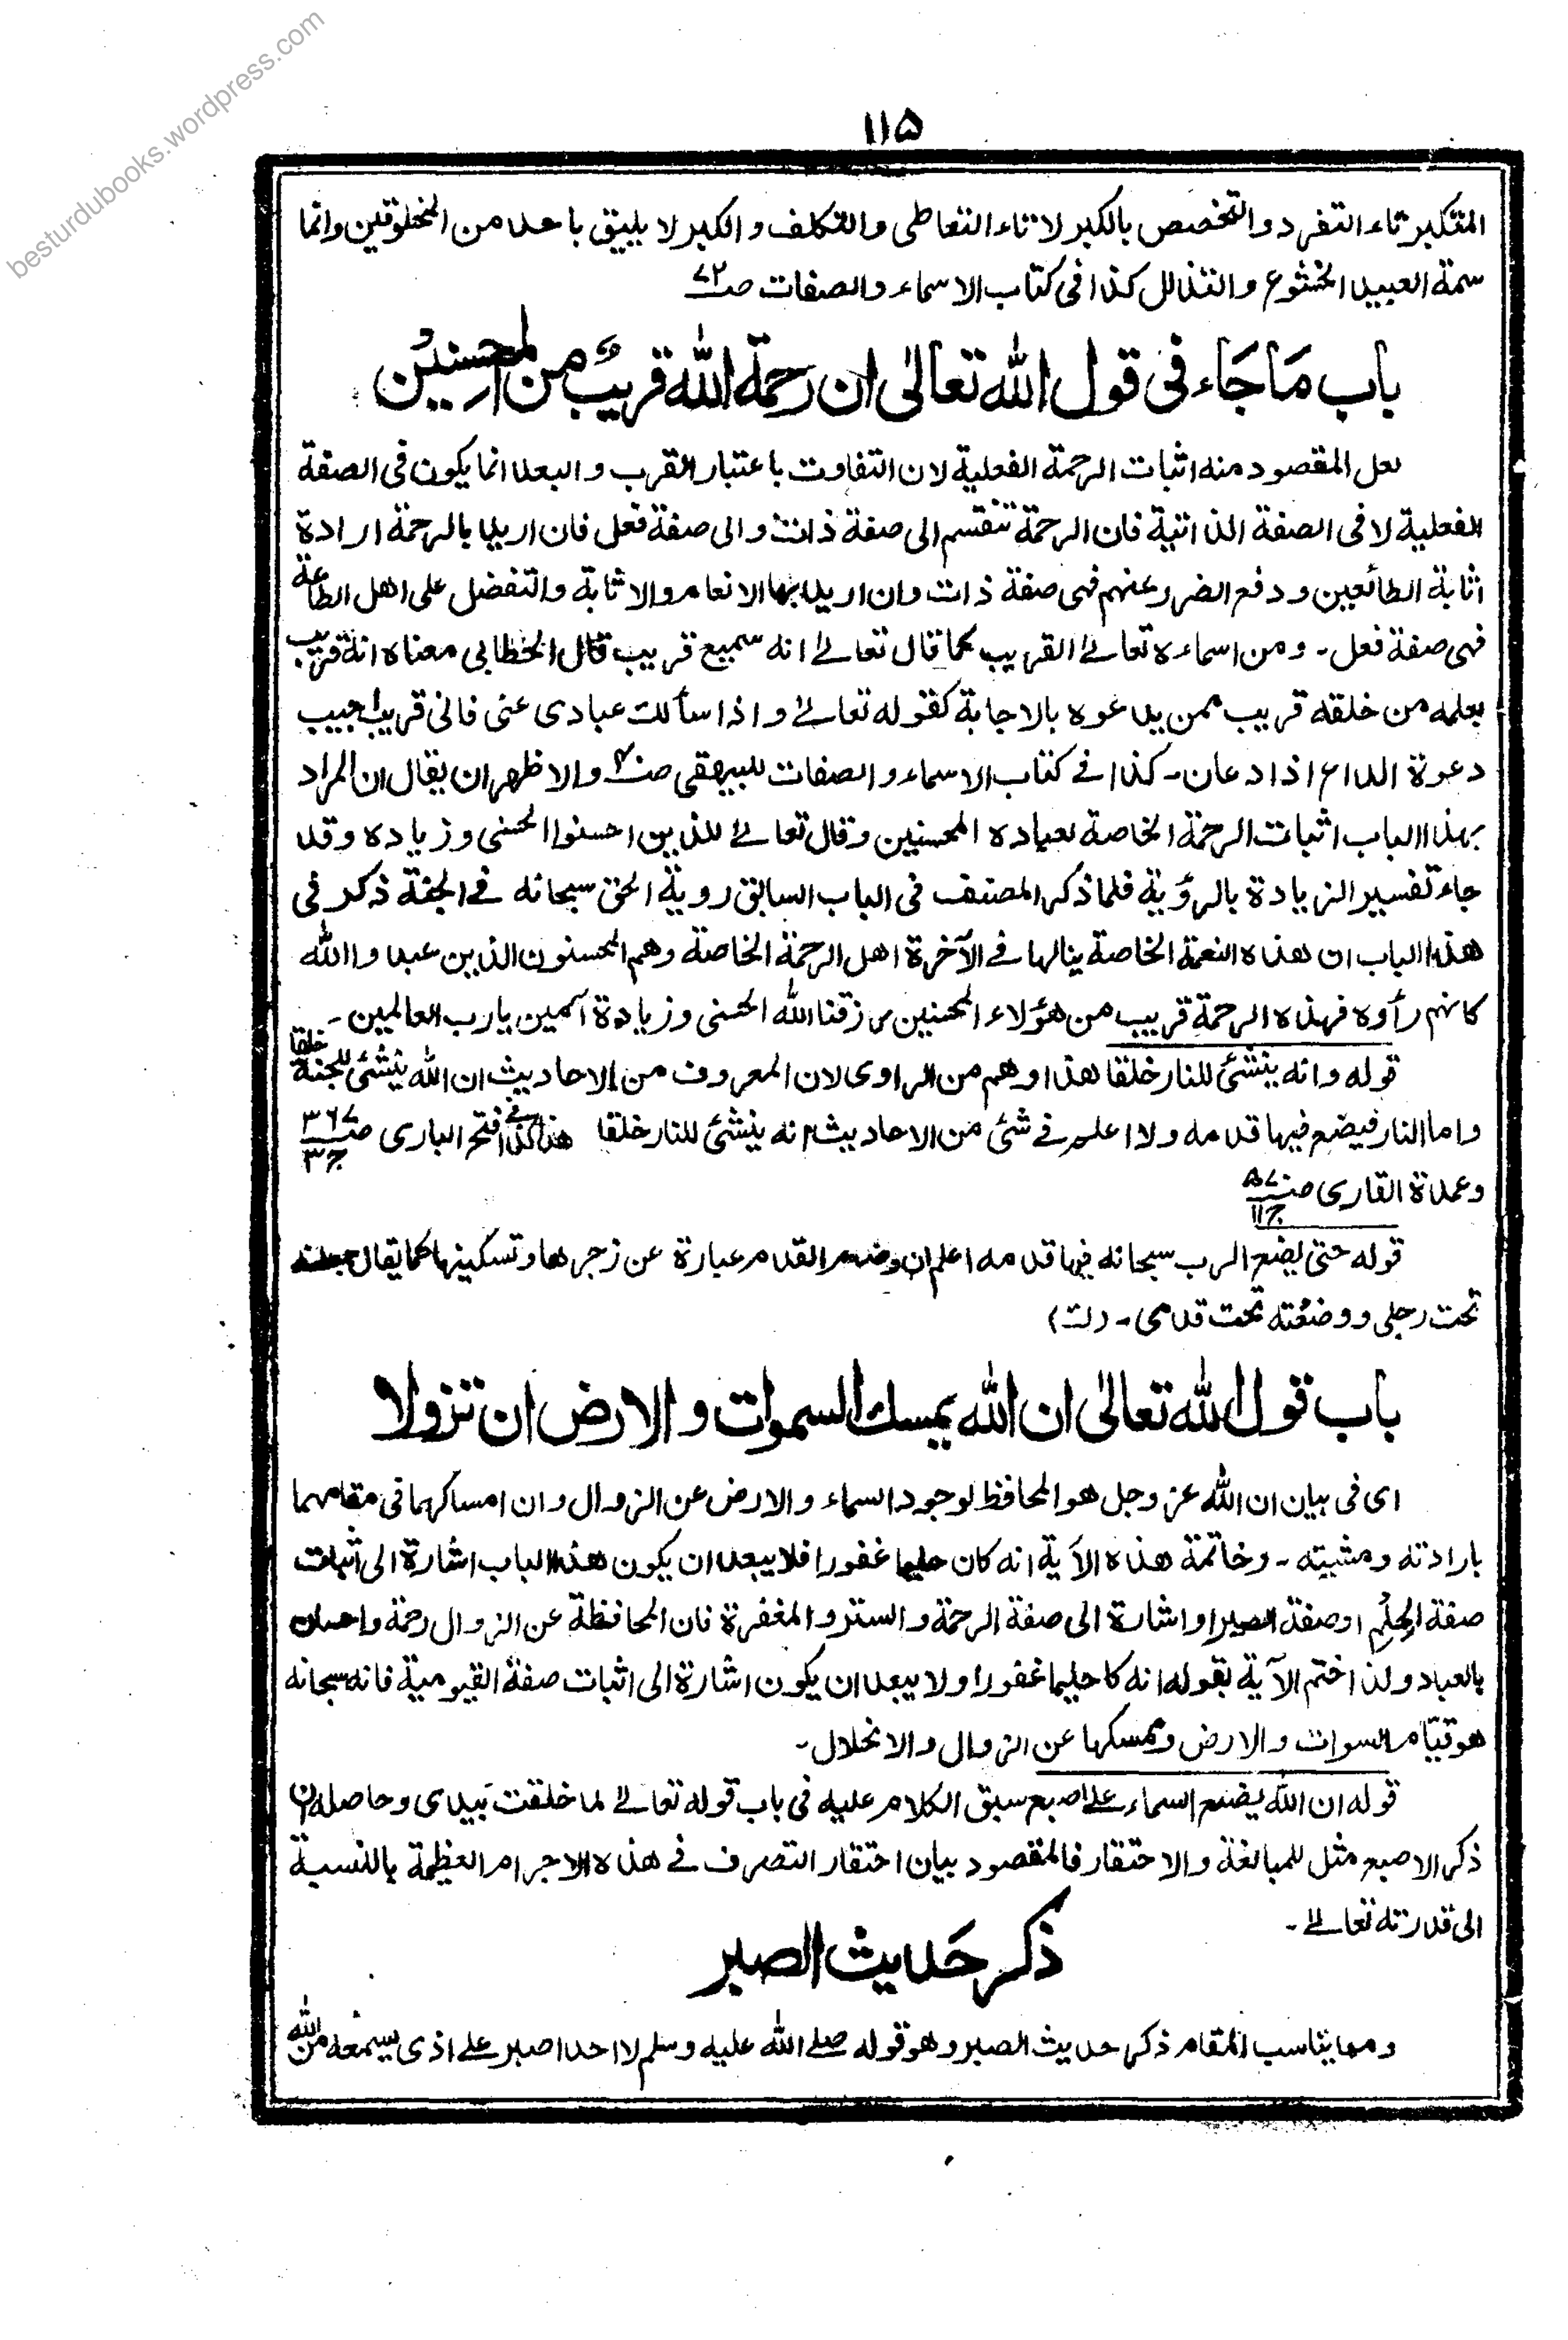 besturdubooks.wordpress.com
۱۱۵
المتكبر تاء التفرد والتخصص بالكبر لا تاء التعاطی والتكلف والكبر لا يليق باحد من المخلوقين وانما
سمة العبيد الخشوع والتذلل كذا فی كتاب الاسماء والصفات صـ۷۲
باب مَا جَاء فی قول الله تعالیٰ ان رحمة الله قريبٌ من المحسنين
لعل المقصود منه اثبات الرحمة الفعلية لان التفاوت باعتبار القرب والبعد انما يكون فی الصفة
الفعلية لا فی الصفة الذاتية فان الرحمة تنقسم الی صفة ذات والی صفة فعل فان اريد بالرحمة ارادة
اثابة الطائعين ودفع الضرر عنهم فهی صفة ذات وان اريد بها الانعام والاثابة والتفضل علی اهل الطاعة
فهی صفة فعل۔ ومن اسماءه تعالےٰ القريب كما قال تعالےٰ انه سميع قريب قال الخطابی معناه انه قريب
بعلمه من خلقه قريب ممن يدعوه بالاجابة كقوله تعالےٰ واذا سألك عبادی عنی فانی قريب اجيب
دعوة الداع اذا دعان۔ كذا فے كتاب الاسماء والصفات للبيهقی صـ والاظهر ان يقال ان المراد
بهذا الباب اثبات الرحمة الخاصة لعباده المحسنين وقال تعالےٰ للذين احسنوا الحسنی وزياده وقد
جاء تفسير الزيادة بالرؤية فلما ذكر المصنف فی الباب السابق روية الحق سبحانه فے الجنة ذكر فی
هذا الباب ان هذه النعمة الخاصة ينالها فے الآخرة اهل الرحمة الخاصة وهم المحسنون الذين عبدوا الله
كانهم رأوه فهذه الرحمة قريب من هؤلاء المحسنين رزقنا الله الحسنی وزيادة آمين يا رب العالمين۔
قوله وانه ينشئ للنار خلقا هذا وهم من الراوی لان المعروف من الاحاديث ان الله ينشئ للجنة خلقا
واما النار فيضع فيها قدمه ولا اعلم فے شئ من الاحاديث انه ينشئ للنار خلقا هذا كذا فے فتح الباری صـ۳۶۷ ج۳
وعمدة القاری صـ ج۱۱
قوله حتی يضع الرب سبحانه فيها قدمه اعلم ان وضع القدم عبارة عن زجرها وتسكينها كما يقال جعلته
تحت رجلی ووضعته تحت قدمی۔ (ك)
باب قول الله تعالیٰ ان الله يمسك السموات والارض ان تزولا
ای فی بيان ان الله عز وجل هو المحافظ لوجود السماء والارض عن الزوال وان امساكهما فی مقامهما
بارادته ومشيته۔ وخاتمة هذه الآية انه كان حليما غفورا فلا يبعد ان يكون هذا الباب اشارة الی اثبات
صفة الحِلم او صفة الصبر او اشارة الی صفة الرحمة والستر والمغفرة فان المحافظة عن الزوال رحمة واحسان
بالعباد ولذا ختم الآية بقوله انه كا حليما غفورا ولا يبعد ان يكون اشارة الی اثبات صفة القيومية فانه سبحانه
هو قيّام السموات والارض وممسكها عن الزوال والانحلال۔
قوله ان الله يضع السماء علے اصبع سبق الكلام عليه فی باب قوله تعالےٰ لما خلقت بيدی وحاصله ان
ذكر الاصبع مثل للمبالغة والاحتقار فالمقصود بيان احتقار التصرف فے هذه الاجرام العظيمة بالنسبة
الی قدرته تعالےٰ۔
ذكر حَديث الصبر
ومما يناسب المقام ذكر حديث الصبر وهو قوله صلے الله عليه وسلم لا احد اصبر علے اذی يسمعه من الله